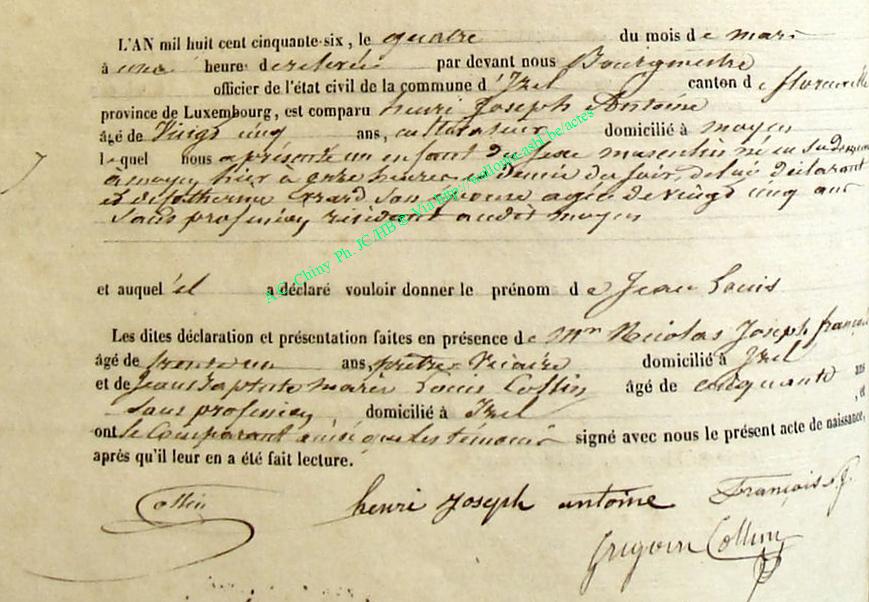 L'AN mil huit cent cinquante-six, le quatre du mois de mars
à une heure de relevée par devant nous Bourgmestre
officier de l'état civil de la commune d'Izel canton de florenville
province de Luxembourg, est comparu henri Joseph Antoine
âgé de Vingt cinq ans, cultivateur domicilié à moyen
lequel nous a présenté un enfant du sexe masculin né
à moyen hier à onze heures et demie du soir, de lui déclarant
et de Catherine son épouse agée de vingt cinq ans
sans profession résidant audit moyen
et auquel il a déclaré vouloir donner le prénom de Jean Louis
Les dites déclaration et présentation faites en présence de Mr Nicolas Joseph françois
âgé de trente un ans, prêtre Vicaire domicilié à Izel
et de Jean Baptiste marie Louis Collin âgé de cinquante ans
sans profession domicilié à Izel , et
ont le Comparant ainsi que les témoins signé avec nous le présent acte de naissance,
après qu'il leur en a été fait lecture.
Collin henri Joseph antoine François
Grégoire Collin
A.C. Chiny Ph. JC.HB © Via http://wallonia-asbl.be/actes